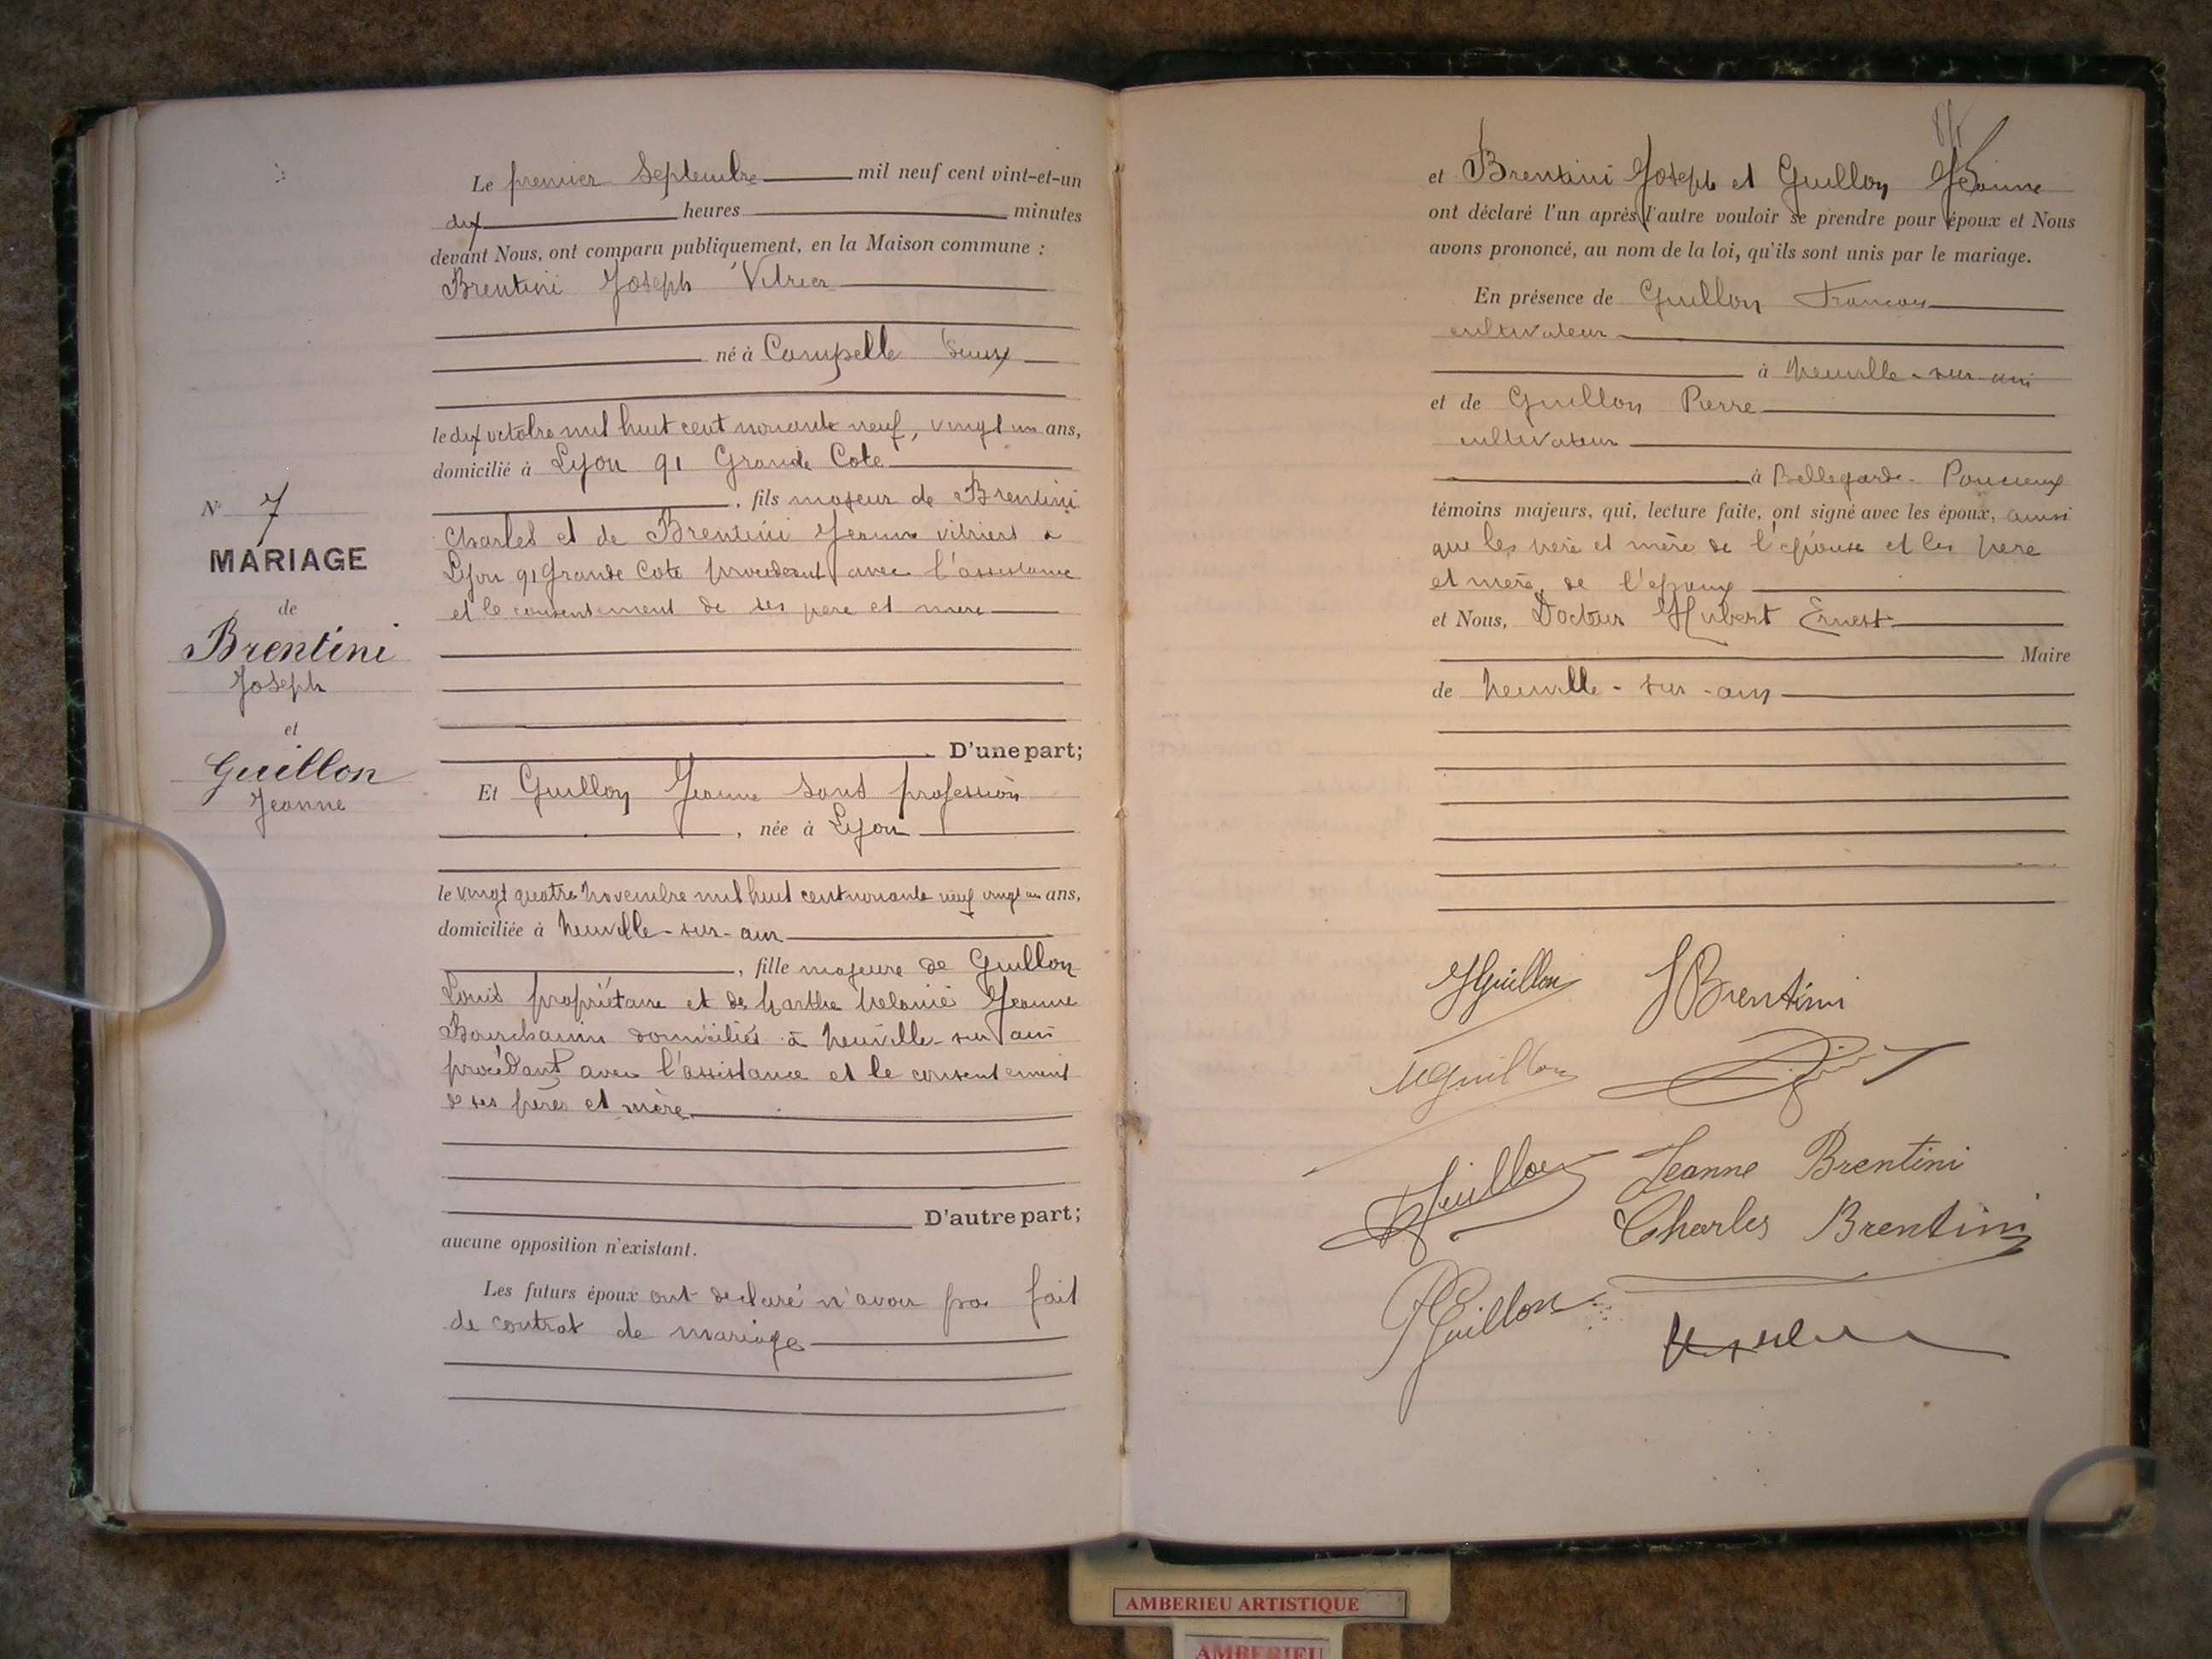 Le premier Septembre mil neuf cent vint-et-un
dix heures minutes
devant Nous, ont comparu publiquement, en la Maison commune :
Brentini Joseph Vitrier
né à Campelle
le dix octobre mil huit cent nonante neuf, vingt un ans,
domicilié à Lyon 91 Grande Cote
, fils majeur de Brentini
Charles et de Brentini Jeanne vitriers a
Lyon 91 Grande Cote procedant avec l'assistance
et le consentement de ses pere et mere
N° 7
MARIAGE
de
Brentini
Joseph
et
Guillon
Jeanne
D'une part;
Et Guillon Jeanne Sans profession
, née à Lyon
le vingt quatre Novembre mil huit cent nonante neuf vingt un ans,
domiciliée à Neuville-sur-ain
, fille majeure de Guillon
Louis propriétaire et de Marthe Melanie Jeanne
domiciliés à Neuville-sur ain
procédant avec l'assistance et le consentement
de ses pères et mère
D'autre part;
aucune opposition n'existant.
Les futurs époux ont declaré n'avoir pas fait
de contrat de mariage
et Brentini Joseph et Guillon Jeanne
ont déclaré l'un après l'autre vouloir se prendre pour époux et Nous
avons prononcé, au nom de la loi, qu'ils sont unis par le mariage.
En présence de Guillon Francois
cultivateur
à Neuville-sur-ain
et de Guillon Pierre
cultivateur
à Bellegarde-Poussieux
témoins majeurs, qui, lecture faite, ont signé avec les époux, ainsi
que les père et mère de l'epouse et les pere
et mère de l'epoux
et Nous, Docteur Hubert Ernest
Maire
de Neuville-sur-ain
JGuillon JBrentini
MGuillon
Guillon Jeanne Brentini
Charles Brentini
PGuillon
AMBERIEU ARTISTIQUE
AMBERIEU